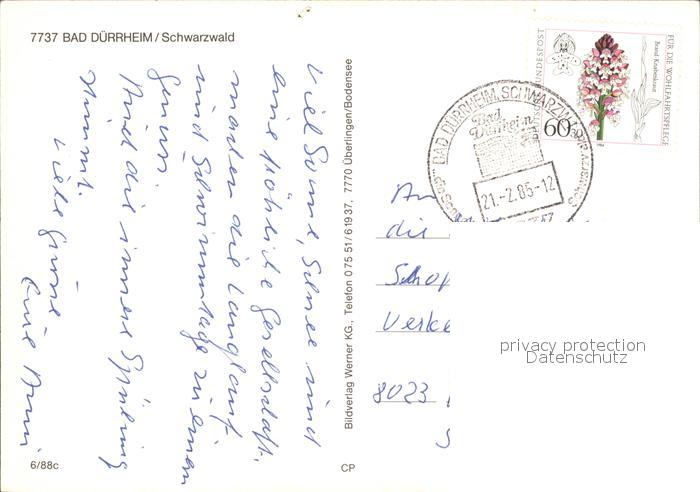 7737 BAD DÜRRHEIM / Schwarzwald
Viel Sonne, Schnee und
eine fröhliche Gesellschaft
machen die Langlauf-
und Schwimmtage zu einem
Genuss.
Nur die innere Spülung
nimmt.
Viele Grüsse
Eure
6/88c
CP
Bildverlag Werner KG., Telefon 0 75 51/6 19 37, 7770 Überlingen/Bodensee
DEUTSCHE BUNDESPOST
60
FÜR DIE WOHLFAHRTSPFLEGE
Brand-Knabenkraut
BAD DÜRRHEIM, SCHWARZWALD
Bad
Dürrheim
21.-2.85-12
An
die
8023
privacy protection
Datenschutz